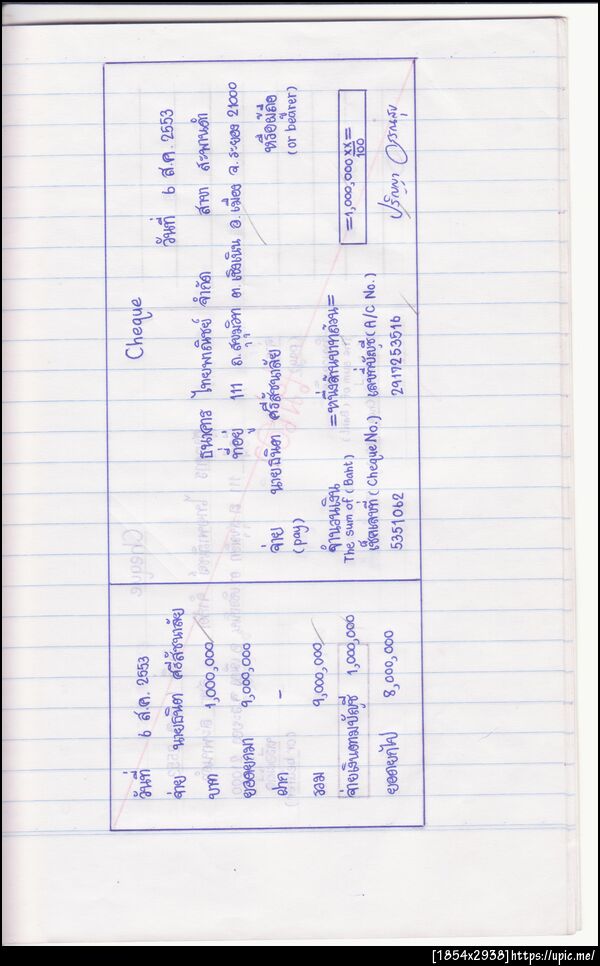 วันที่ 6 ส.ค. 2553
จ่าย นายธนิต ศรีสัชนาลัย
บาท 1,000,000
ยอดยกมา 9,000,000
ฝาก -
รวม 9,000,000
จ่ายเงินตามบัญชี 1,000,000
ยอดยกไป 8,000,000
Cheque
วันที่ 6 ส.ค. 2553
ธนาคาร ไทยพาณิชย์ จำกัด สาขา สะพานดำ
ที่อยู่ 111 ถ.สุขุมวิท ต.เชิงเนิน อ.เมือง จ.ระยอง 21000
จ่าย นายธนิต ศรีสัชนาลัย หรือผู้ถือ
(pay) (or bearer)
จำนวนเงิน =หนึ่งล้านบาทถ้วน=
The sum of (Baht) =1,000,000 xx/100=
เช็คเลขที่ (Cheque No.) เลขที่บัญชี (A/C No.)
5351062 2917253516
[1854x2938]https://upic.me/